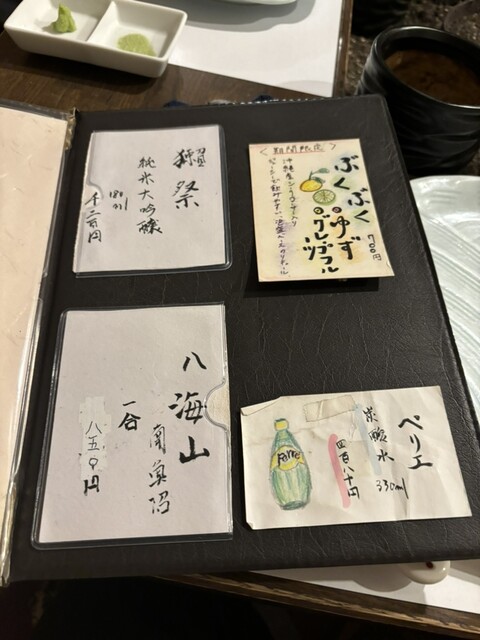 獺祭
純米大吟醸
180ml
千二百円
<期間限定>
ぶくぶく
ゆず
グレープフルーツ
700円
八海山
南魚沼
一合
八五〇円
ペリエ
炭酸水 330ml
四百八十円